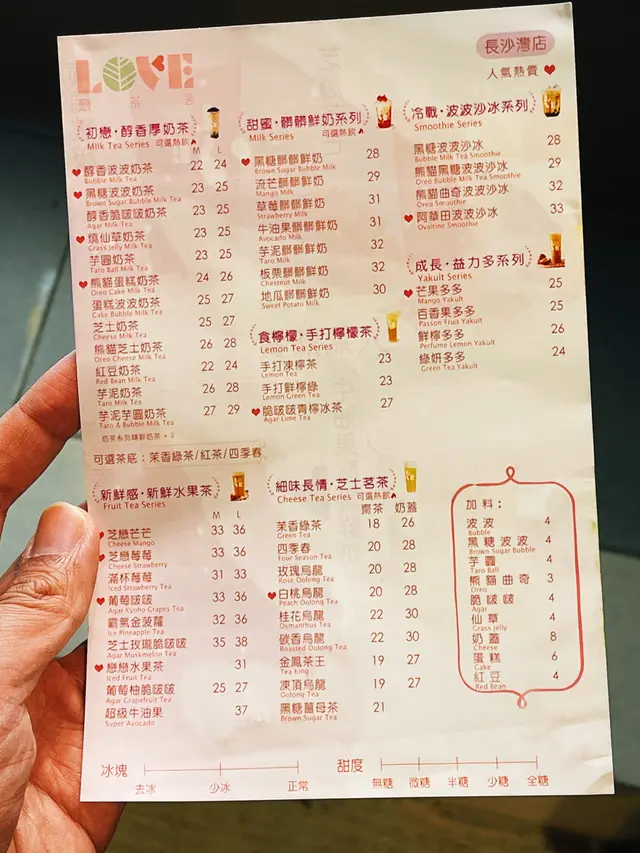 LOVE
長沙灣店
人氣熱賣
初戀·醇香厚奶茶
Milk Tea Series 可選熱飲
M L
醇香波波奶茶 22 24
Bubble Milk Tea
黑糖波波奶茶 23 25
Brown Sugar Bubble Milk Tea
醇香脆啵啵奶茶 23 25
Agar Milk Tea
燒仙草奶茶 23 25
Grass Jelly Milk Tea
芋圓奶茶 23 25
Taro Ball Milk Tea
熊貓蛋糕奶茶 24 26
Oreo Cake Milk Tea
蛋糕波波奶茶 25 27
Cake Bubble Milk Tea
芝士奶茶 25 27
Cheese Milk Tea
熊貓芝士奶茶 26 28
Oreo Cheese Milk Tea
紅豆奶茶 22 24
Red Bean Milk Tea
芋泥奶茶 26 28
Taro Milk Tea
芋泥芋圓奶茶 27 29
Taro & Bubble Milk Tea
奶茶系列轉鮮奶茶 + 3
可選茶底：茉香綠茶/紅茶/四季春
甜蜜·髒髒鮮奶系列
Milk Series 可選熱飲
黑糖髒髒鮮奶 28
Brown Sugar Bubble Milk
流芒髒髒鮮奶 29
Mango Milk
草莓髒髒鮮奶 31
Strawberry Milk
牛油果髒髒鮮奶 31
Avocado Milk
芋泥髒髒鮮奶 32
Taro Milk
板栗髒髒鮮奶 32
Chestnut Milk
地瓜髒髒鮮奶 30
Sweet Potato Milk
食檸檬·手打檸檬茶
Lemon Tea Series
手打凍檸茶 23
Lemon Tea
手打鮮檸綠 23
Lemon Green Tea
脆啵啵青檸冰茶 27
Agar Lime Tea
冷戰·波波沙冰系列
Smoothie Series
黑糖波波沙冰 28
Bubble Milk Tea Smoothie
熊貓黑糖波波沙冰 29
Oreo Bubble Milk Tea Smoothie
熊貓曲奇波波沙冰 32
Oreo Smoothie
阿華田波波沙冰 33
Ovaltine Smoothie
成長·益力多系列
Yakult Series
芒果多多 25
Mango Yakult
百香果多多 25
Passon Fruit Yakult
鮮檸多多 26
Perfume Lemon Yakult
綠妍多多 24
Green Tea Yakult
新鮮感·新鮮水果茶
Fruit Tea Series
M L
芝戀芒芒 33 36
Cheese Mango
芝戀莓莓 33 36
Cheese Strawberry
滿杯莓莓 31 33
Iced Strawberry Tea
葡萄啵啵 33 36
Agar Kyoho Grapes Tea
霸氣金菠蘿 32 36
Ice Pineapple Tea
芝士玫瓏脆啵啵 35 38
Agar Muskmelon Tea
戀戀水果茶 31
Iced Fruit Tea
葡萄柚脆啵啵 25 27
Agar Grapefruit Tea
超級牛油果 37
Super Avocado
細味長情·芝士茗茶
Cheese Tea Series 可選熱飲
齋茶 奶蓋
茉香綠茶 18 26
Green Tea
四季春 20 28
Four Season Tea
玫瑰烏龍 20 28
Rose Oolong Tea
白桃烏龍 20 28
Peach Oolong Tea
桂花烏龍 22 30
Osmanthus Tea
碳香烏龍 22 30
Roasted Oolong Tea
金鳳茶王 19 27
Tea King
凍頂烏龍 19 27
Oolong Tea
黑糖薑母茶 21
Brown Sugar Tea
加料：
波波 4
Bubble
黑糖波波 4
Brown Sugar Bubble
芋圓 4
Taro Ball
熊貓曲奇 3
Oreo
脆啵啵 4
Agar
仙草 4
Grass Jelly
奶蓋 8
Cheese
蛋糕 6
Cake
紅豆 4
Red Bean
冰塊
去冰 少冰 正常
甜度
無糖 微糖 半糖 少糖 全糖